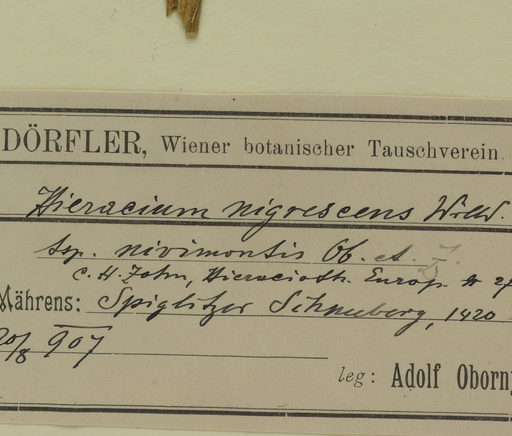 DÖRFLER, Wiener botanischer Tauschverein.
Hieracium nigrescens Willd.
ssp. nivimontis Ob. et Z.
C. H. Zahn, Hieracioth. Europ. №
Mährens: Spiglitzer Schneeberg, 1420
20/8 907
leg: Adolf Oborny